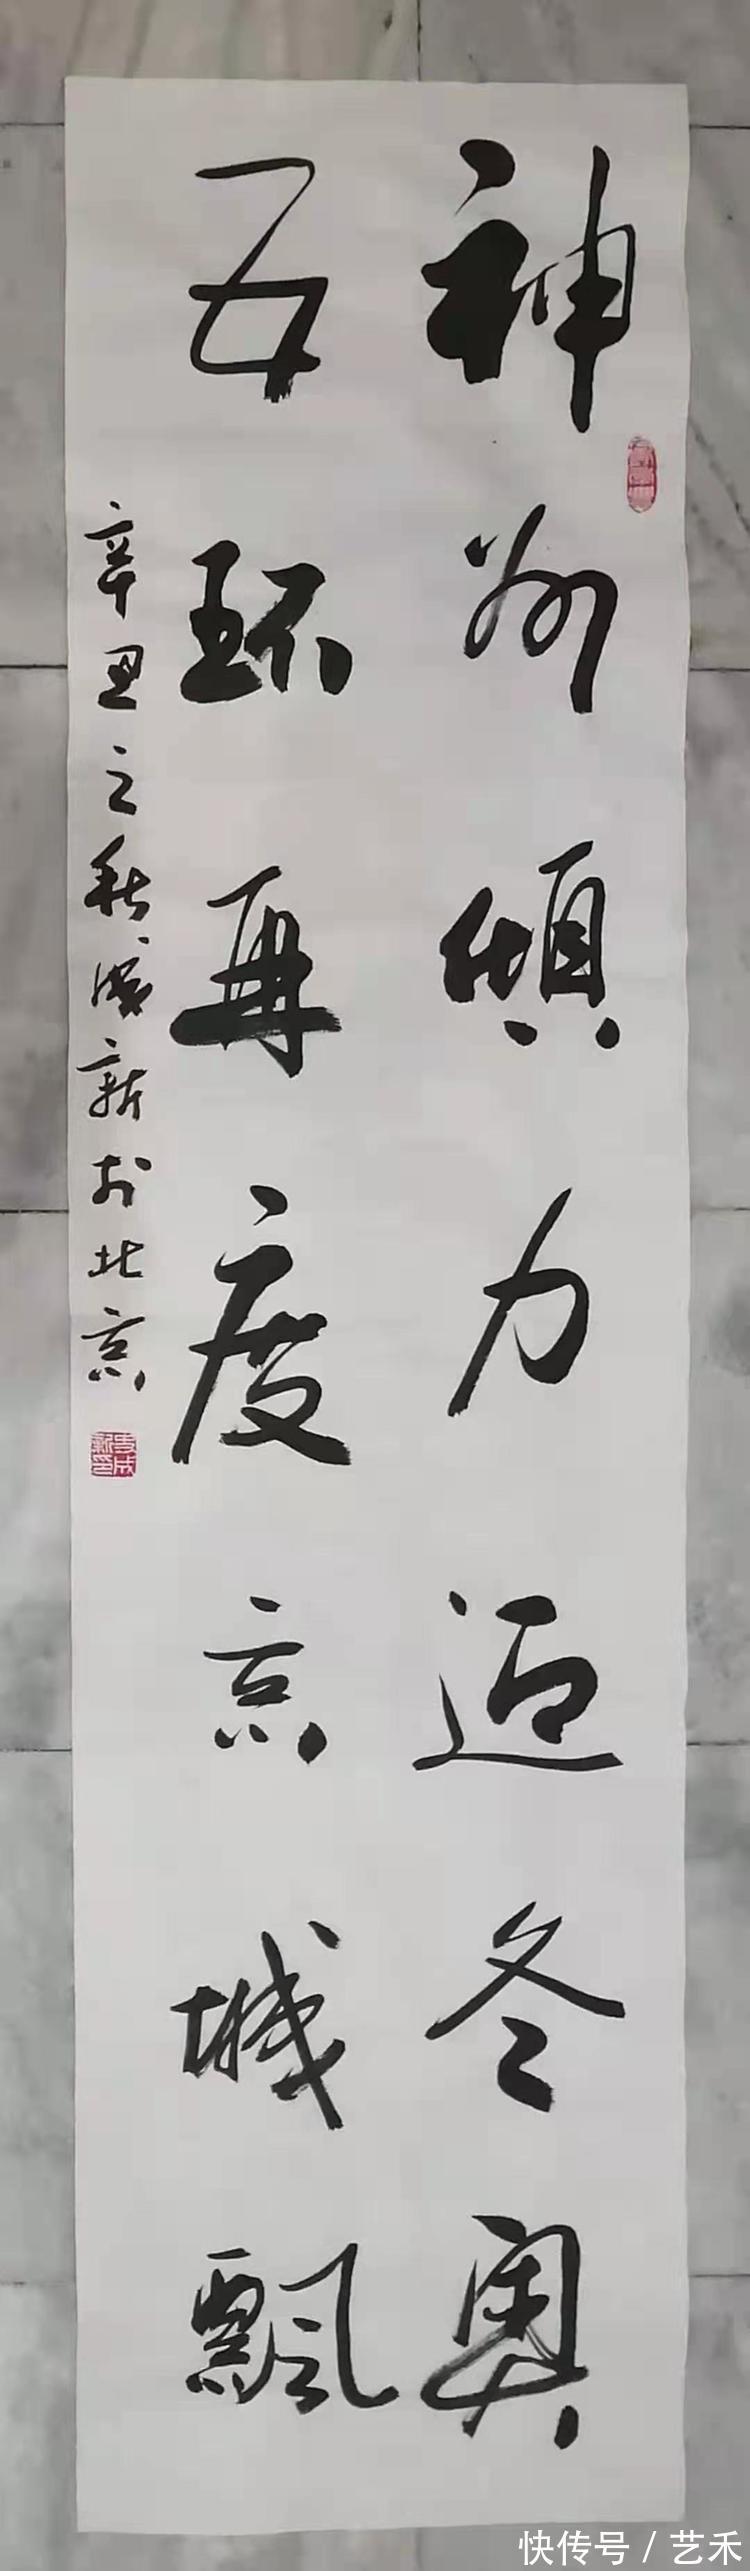 神州倾力迎冬奥
五环再度京城飘
辛丑之秋成新于北京
快传号/艺禾